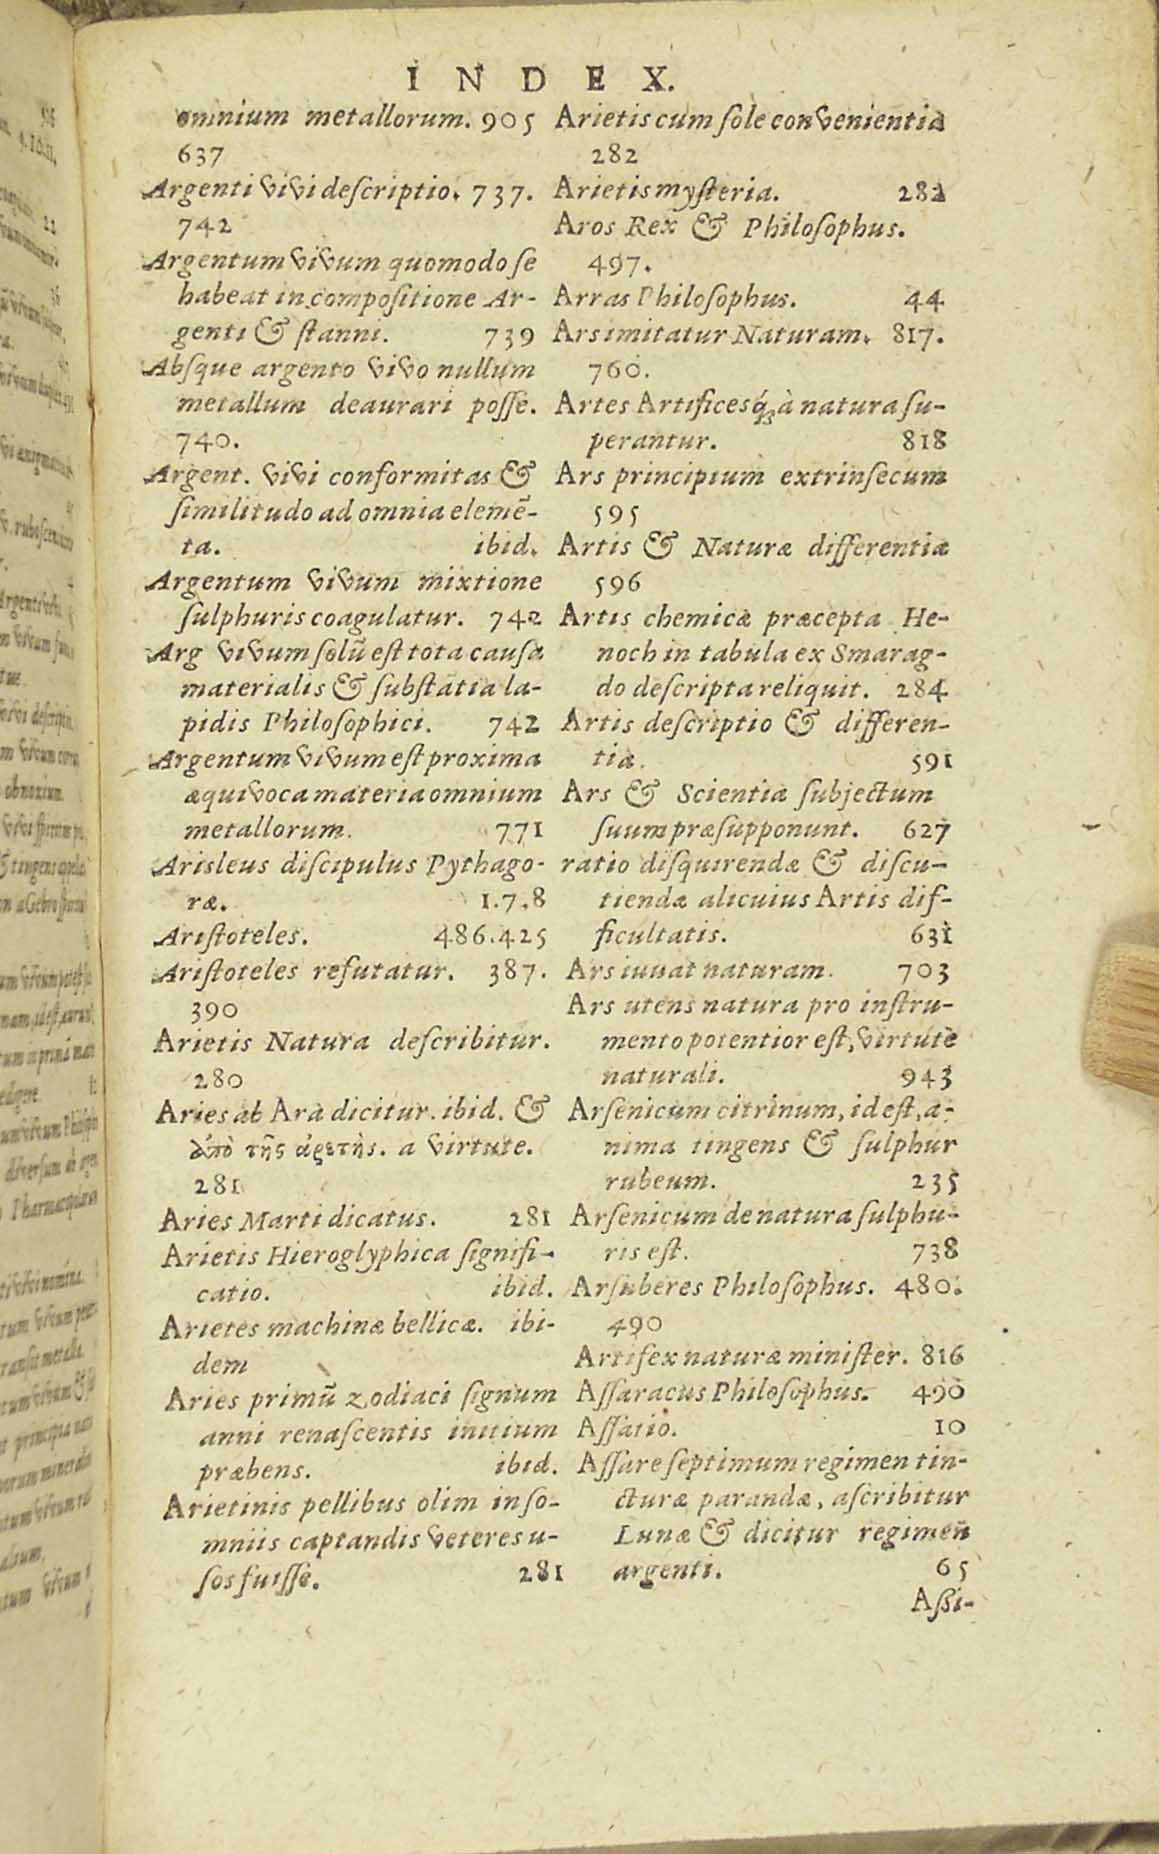 INDEX.
omnium metallorum. 905
637
Argenti vivi descriptio. 737.
742
Argentum vivum quomodo se
habeat in compositione Ar-
genti & stanni. 739
Absque argento vivo nullum
metallum deaurari posse.
740.
Argent. vivi conformitas &
similitudo ad omnia elemē-
ta. ibid.
Argentum vivum mixtione
sulphuris coagulatur. 742
Arg vivum solū est tota causa
materialis & substatia la-
pidis Philosophici. 742
Argentum vivum est proxima
æquivoca materia omnium
metallorum. 771
Arisleus discipulus Pythago-
ræ. 1.7.8
Aristoteles. 486.425
Aristoteles refutatur. 387.
390
Arietis Natura describitur.
280
Aries ab Ara dicitur. ibid. &
ἀπὸ τῆς ἀρετῆς. a virtute.
281
Aries Marti dicatus. 281
Arietis Hieroglyphica signifi-
catio. ibid.
Arietes machinæ bellicæ. ibi-
dem
Aries primū zodiaci signum
anni renascentis initium
præbens. ibid.
Arietinis pellibus olim inso-
mniis captandis veteres u-
sos fuisse. 281
Arietis cum sole convenientia
282
Arietis mysteria. 282
Aros Rex & Philosophus.
497.
Arras Philosophus. 44
Ars imitatur Naturam. 817.
760.
Artes Artificesq́; à natura su-
perantur. 818
Ars principium extrinsecum
595
Artis & Naturæ differentia
596
Artis chemicæ præcepta He-
noch in tabula ex Smarag-
do descripta reliquit. 284
Artis descriptio & differen-
tia. 591
Ars & Scientia subjectum
suum præsupponunt. 627
ratio disquirendæ & discu-
tiendæ alicuius Artis dif-
ficultatis. 631
Ars iuvat naturam. 703
Ars utens natura pro instru-
mento potentior est, virtute
naturali. 943
Arsenicum citrinum, id est, a-
nima tingens & sulphur
rubeum. 235
Arsenicum de natura sulphu-
ris est. 738
Arsuberes Philosophus. 480.
490
Artifex naturæ minister. 816
Assaracus Philosophus. 490
Assatio. 10
Assare septimum regimen tin-
cturæ parandæ, ascribitur
Lunæ & dicitur regimen
argenti. 65
Assi-